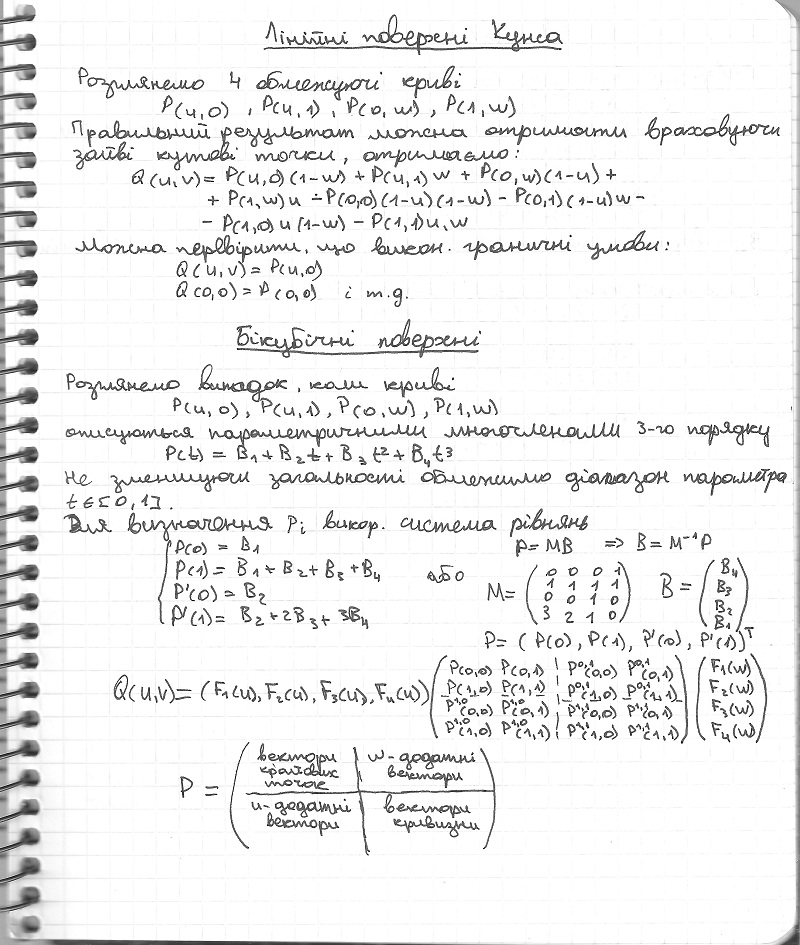 Лінійні поверхні Кунса
Розглянемо 4 обмежуючі криві
P(u,0), P(u,1), P(0,w), P(1,w)
Правильний результат можна отримати враховуючи
зайві кутові точки, отримаємо:
Q(u,v) = P(u,0)(1-w) + P(u,1)w + P(0,w)(1-u) +
+ P(1,w)u - P(0,0)(1-u)(1-w) - P(0,1)(1-u)w -
- P(1,0)u(1-w) - P(1,1)u,w
Можна перевірити, що викон. граничні умови:
Q(u,v) = P(u,0)
Q(0,0) = P(0,0) і т.д.
Бікубічні поверхні
Розглянемо випадок, коли криві
P(u,0), P(u,1), P(0,w), P(1,w)
описуються параметричними многочленами 3-го порядку
P(t) = B₁ + B₂t + B₃t² + B₄t³
Не зменшуючи загальності обмежимо діапазон параметра
t ∈ [0,1].
Для визначення Pi викор. система рівнянь
P(0) = B₁
P(1) = B₁ + B₂ + B₃ + B₄
P'(0) = B₂
P'(1) = B₂ + 2B₃ + 3B₄
або
P = MB => B = M⁻¹P
M = ( 0 0 0 1
1 1 1 1
0 0 1 0
3 2 1 0 )
B = ( B₄
B₃
B₂
B₁ )
P = ( P(0), P(1), P'(0), P'(1) )ᵀ
Q(u,v) = (F₁(u), F₂(u), F₃(u), F₄(u))
( P(0,0) P(0,1) P⁰'¹(0,0) P⁰'¹(0,1)
P(1,0) P(1,1) P⁰'¹(1,0) P⁰'¹(1,1)
P¹'⁰(0,0) P¹'⁰(0,1) P¹'¹(0,0) P¹'¹(0,1)
P¹'⁰(1,0) P¹'⁰(1,1) P¹'¹(1,0) P¹'¹(1,1) )
( F₁(w)
F₂(w)
F₃(w)
F₄(w) )
P =
вектори
крайових
точок
w-додатні
вектори
u-додатні
вектори
вектори
кривизни